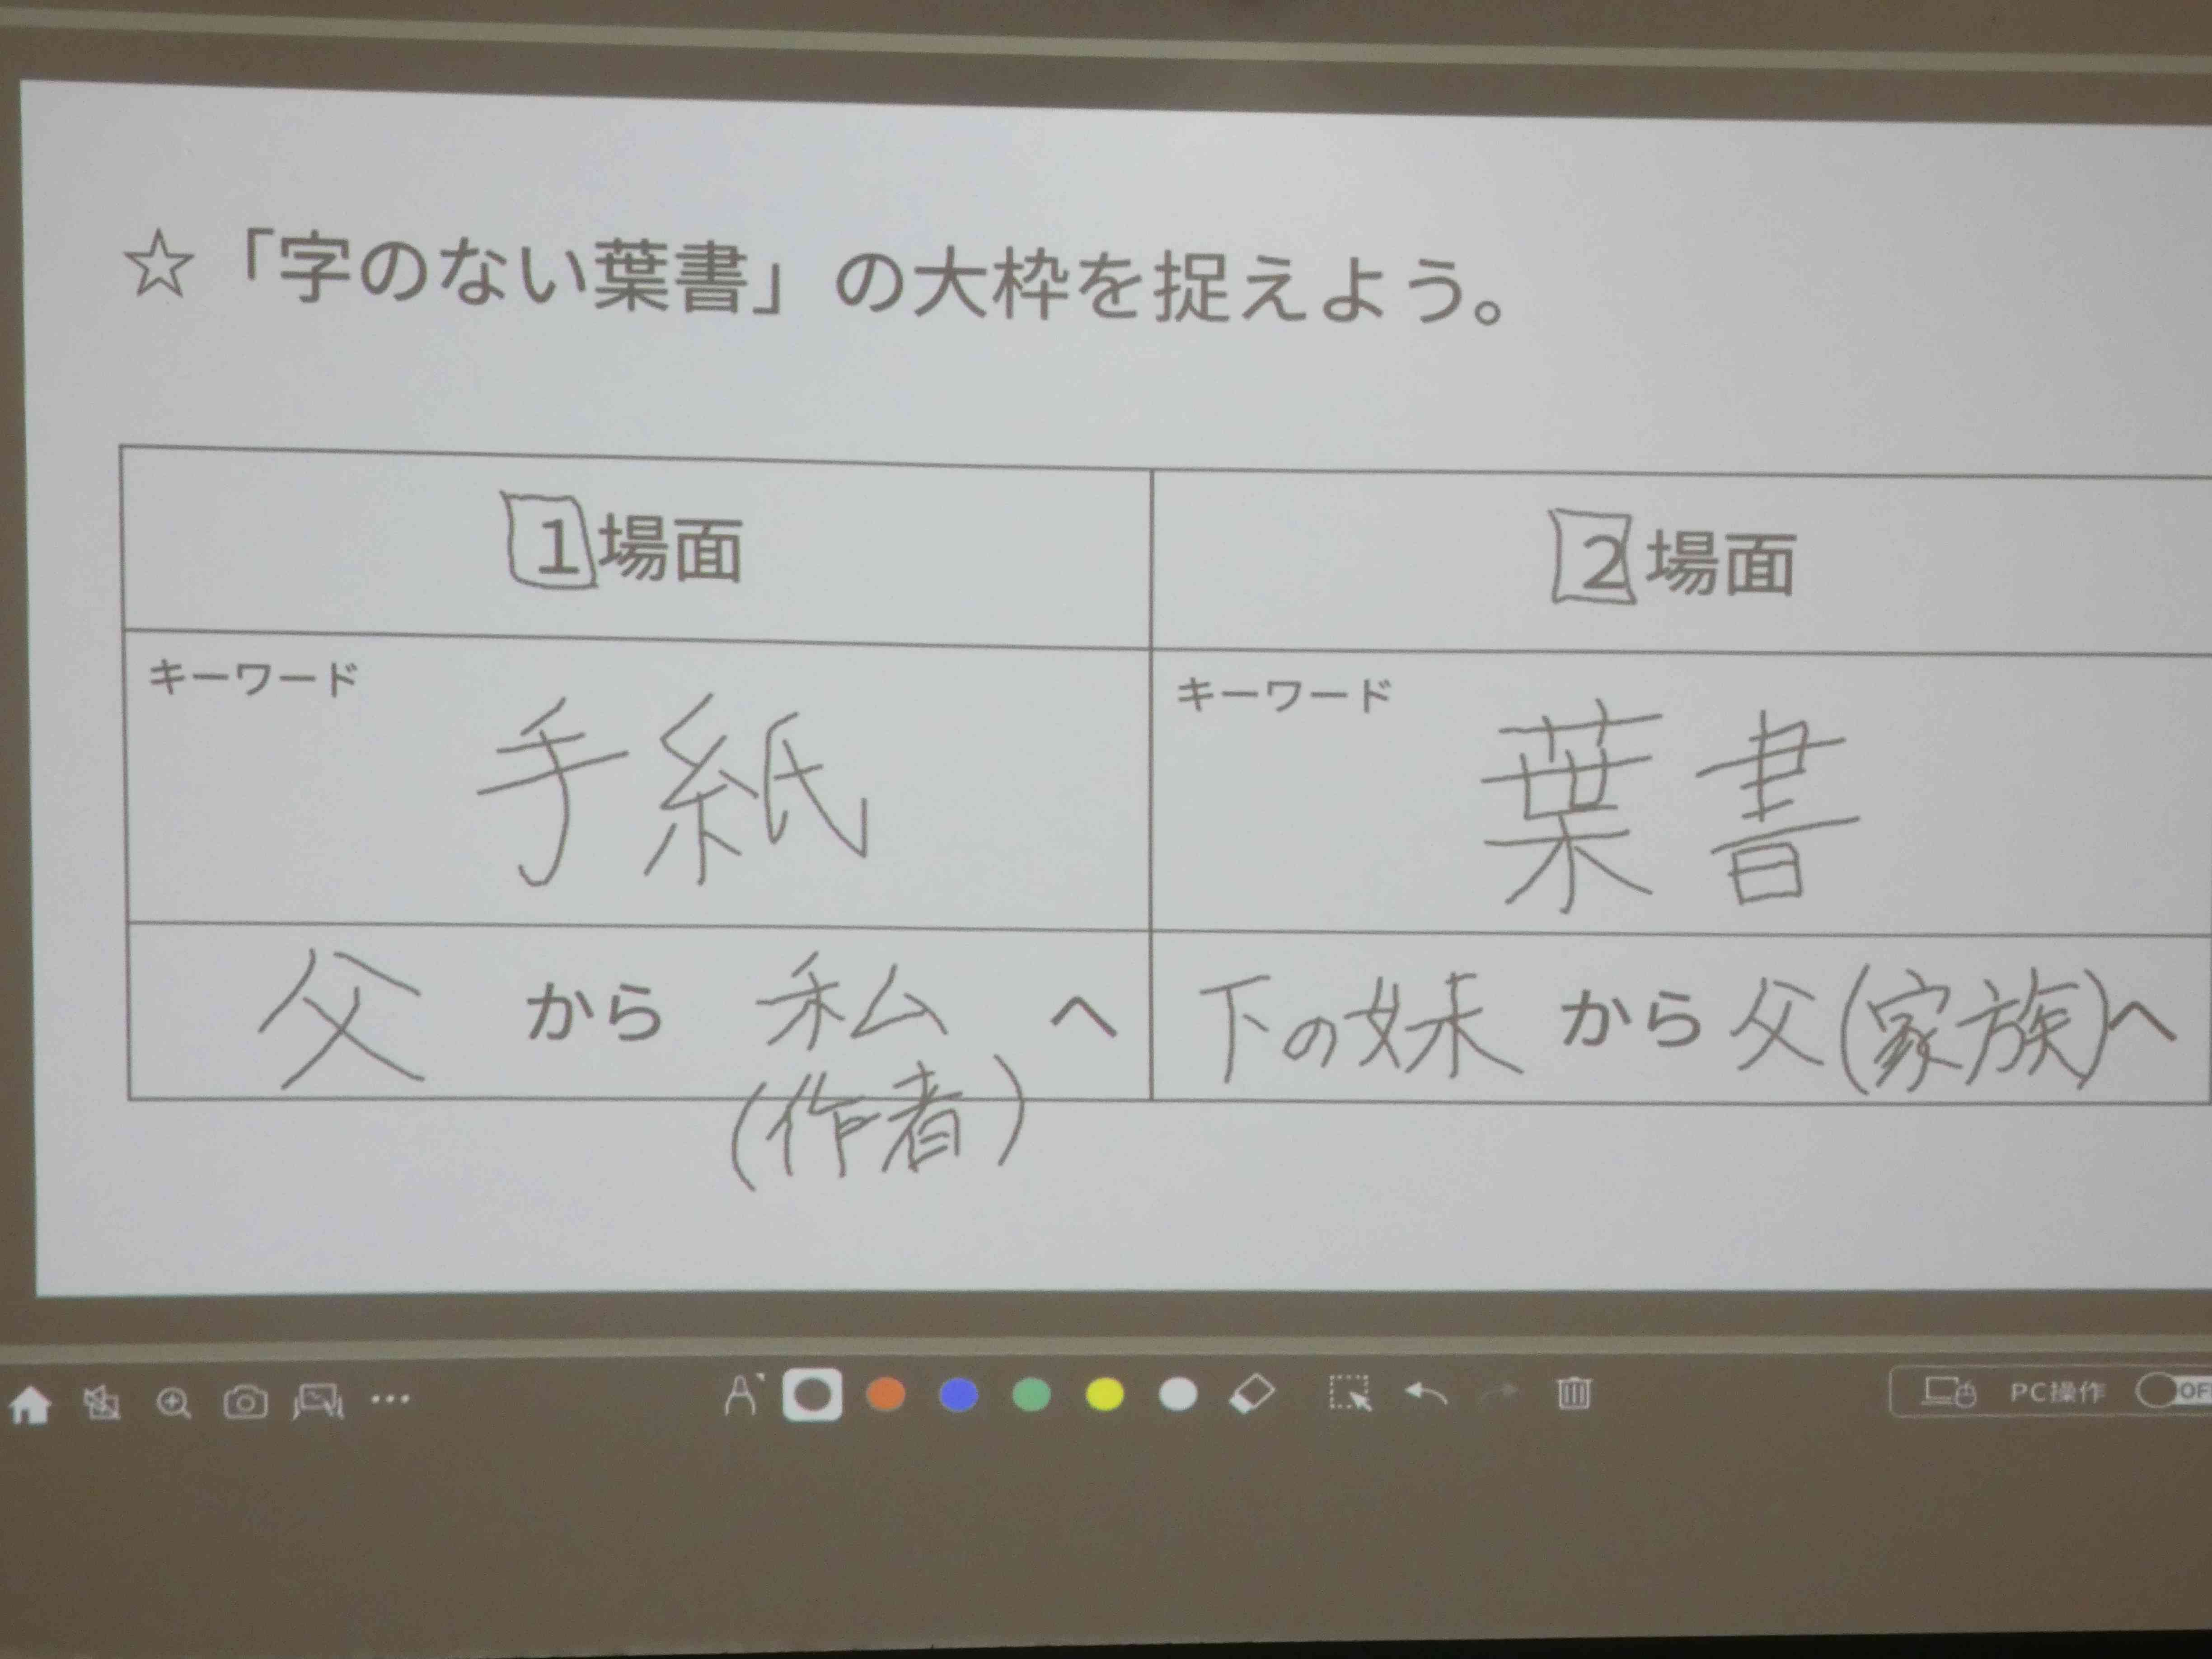 ☆「字のない葉書」の大枠を捉えよう。
1場面
2場面
キーワード
手紙
キーワード
葉書
父 から 私 へ
(作者)
下の妹 から 父(家族)へ
PC操作
OFF